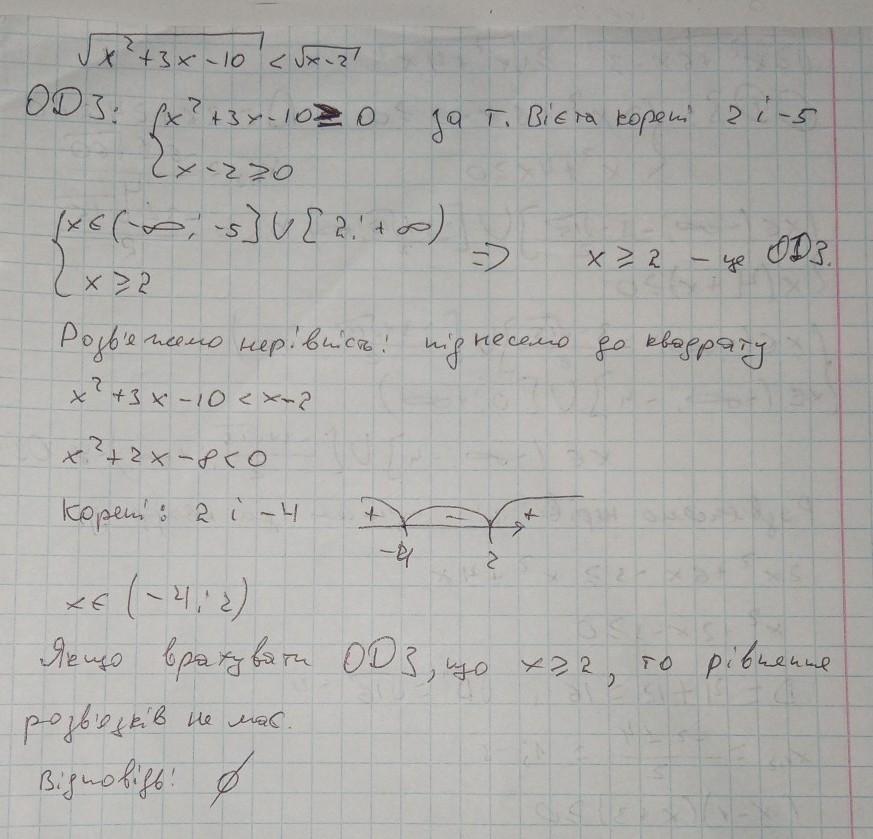 √x²+3x-10 < √x-2
ОДЗ: { x²+3x-10 ≥ 0 за т. Вієта корені 2 і -5
x-2 ≥ 0
{ x ∈ (-∞; -5] ∪ [2; +∞)
x ≥ 2 => x ≥ 2 - це ОДЗ.
Розв'яжемо нерівність: піднесемо до квадрату
x²+3x-10 < x-2
x²+2x-8 < 0
Корені: 2 і -4
+ - +
-4 2
x ∈ (-4; 2)
Якщо врахувати ОДЗ, що x ≥ 2, то рівняння
розв'язків не має.
Відповідь: ∅